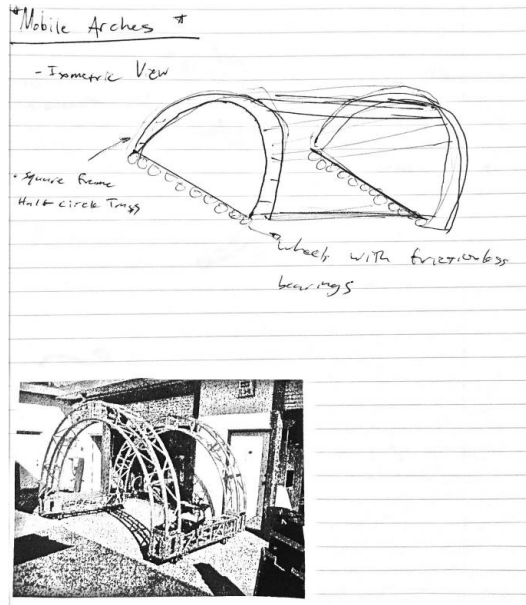 *Mobile Arches *
- Isometric View
• Square Frame
Half circle Truss
Wheels with frictionless
bearings